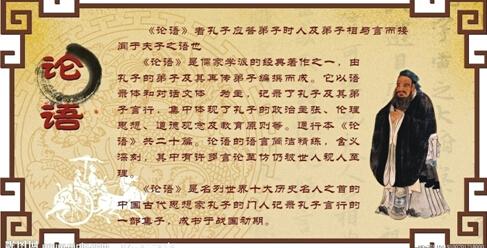 论语
《论语》者孔子应答弟子时人及弟子相与言而接
闻于夫子之语也
《论语》是儒家学派的经典著作之一，由
孔子的弟子及其再传弟子编撰而成。它以语
录体和对话文体 为主，记录了孔子及其弟
子言行，集中体现了孔子的政治主张、伦理
思想、道德观念及教育原则等。通行本《论
语》共二十篇。论语的语言简洁精练，含义
深刻，其中有许多言论至今仍被世人视为至
理。
《论语》是名列世界十大历史名人之首的
中国古代思想家孔子的门人记录孔子言行的
一部集子，成书于战国初期。